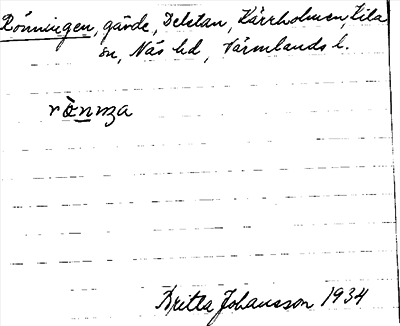 Rönningen, gärde, Delstan, Kärrholmen, Kila
sn, Näs hd, Värmlands l.
rònnza
Britta Johansson 1934